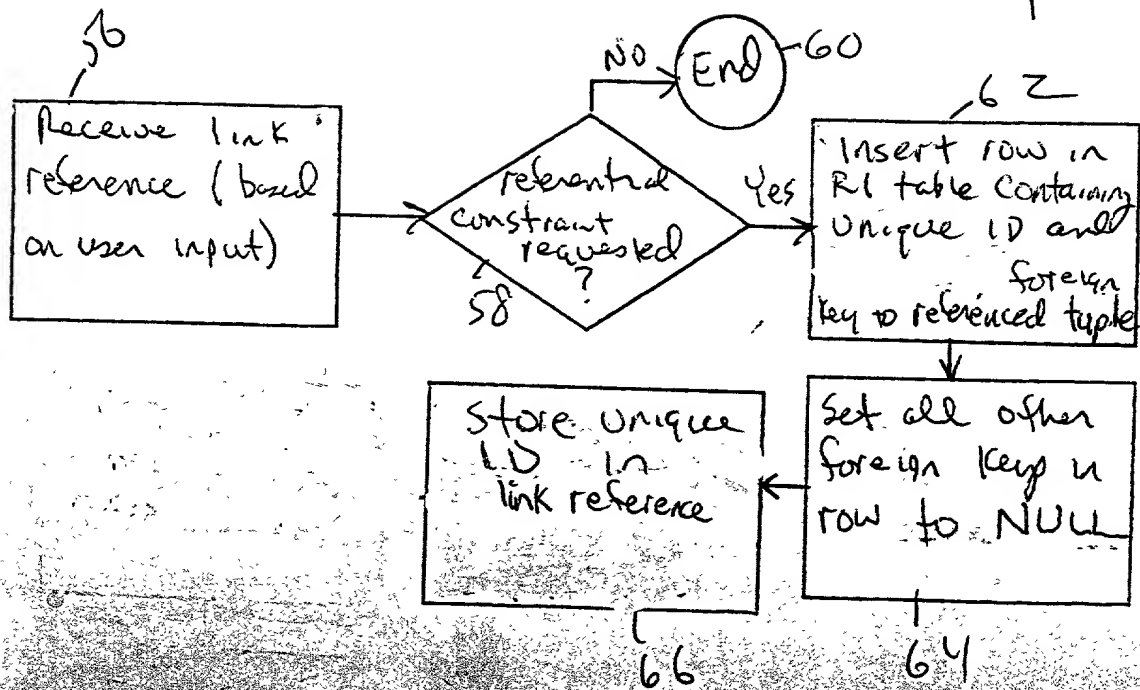 56
Receive link
reference (based
on user input)
referential
constraint
requested
?
58
NO
End
60
Yes
62
Insert row in
RI table containing
unique ID and
foreign
key to referenced tuple
Set all other
foreign keys in
row to NULL
64
store unique
ID in
link reference
66